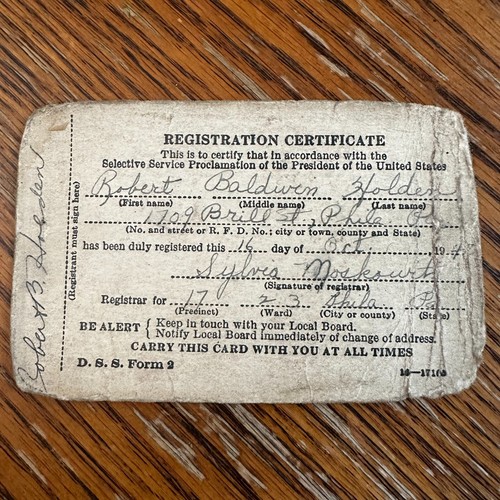 REGISTRATION CERTIFICATE
This is to certify that in accordance with the
Selective Service Proclamation of the President of the United States
Robert Baldwin Holden
(First name) (Middle name) (Last name)
1709 Brill St., Phila
(No. and street or R. F. D. No.; city or town, county and State)
has been duly registered this 16 day of Oct. 194
Sylvia
(Signature of registrar)
Registrar for 17 23 Phila Pa.
(Precinct) (Ward) (City or county) (State)
BE ALERT { Keep in touch with your Local Board.
Notify Local Board immediately of change of address.
CARRY THIS CARD WITH YOU AT ALL TIMES
D. S. S. Form 2
(Registrant must sign here)
Robert B. Holden